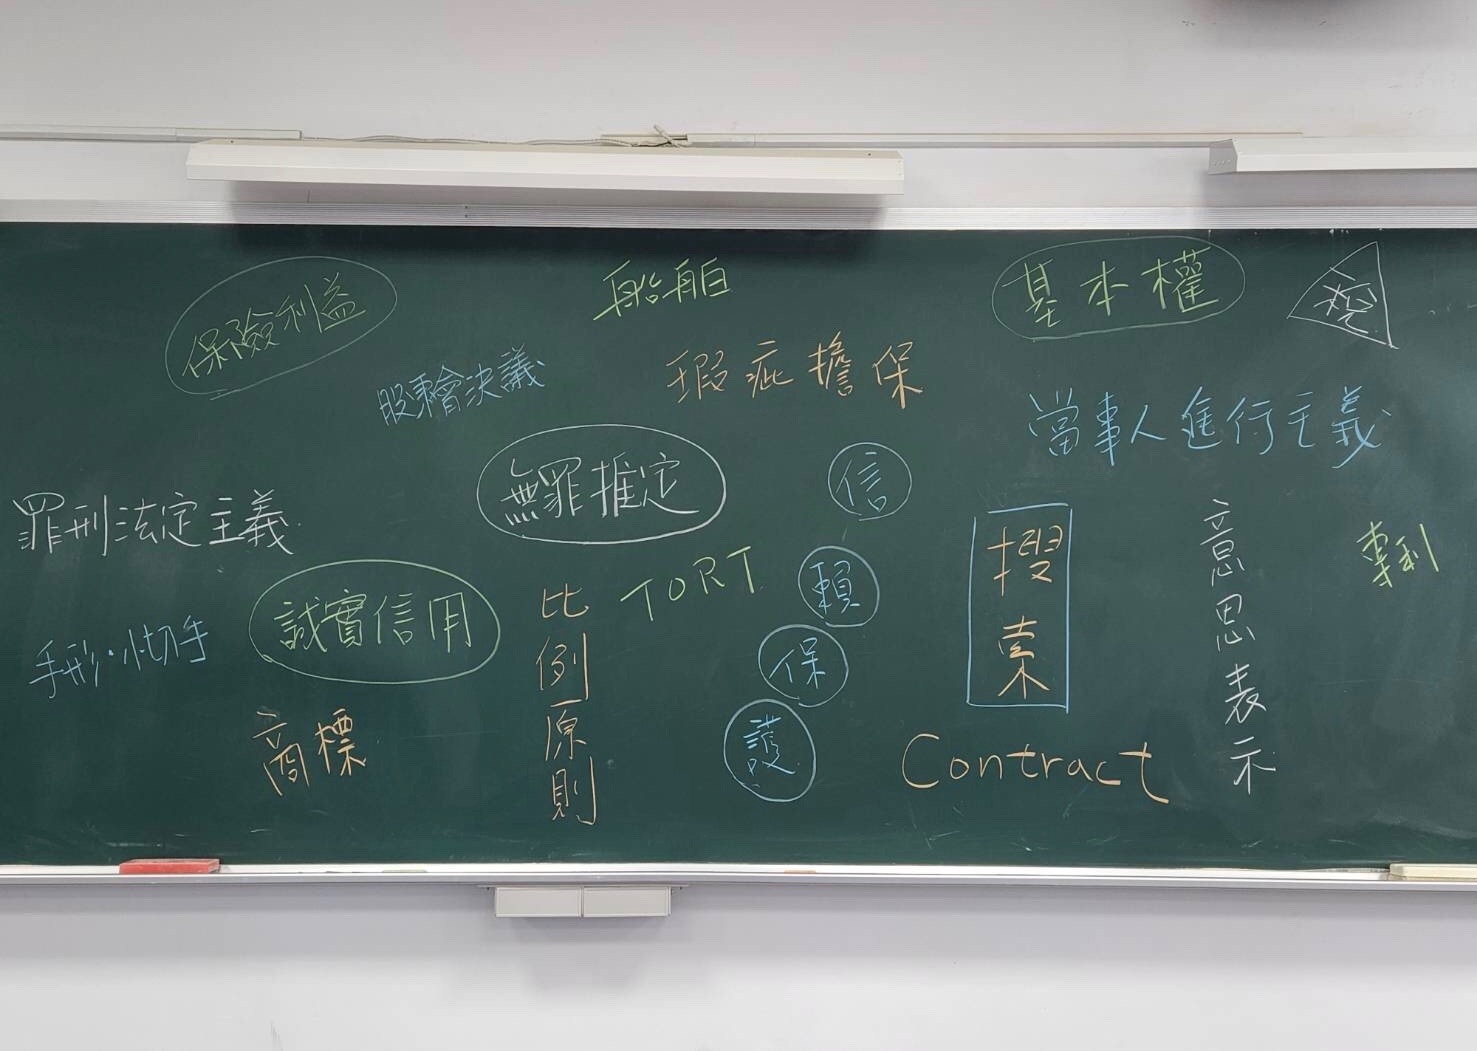 保險利益
船舶
基本權
稅
股東會決議
瑕疵擔保
當事人進行主義
無罪推定
信賴保護
罪刑法定主義
搜索
意思表示
專利
誠實信用
比例原則
TORT
手形·小切手
商標
Contract